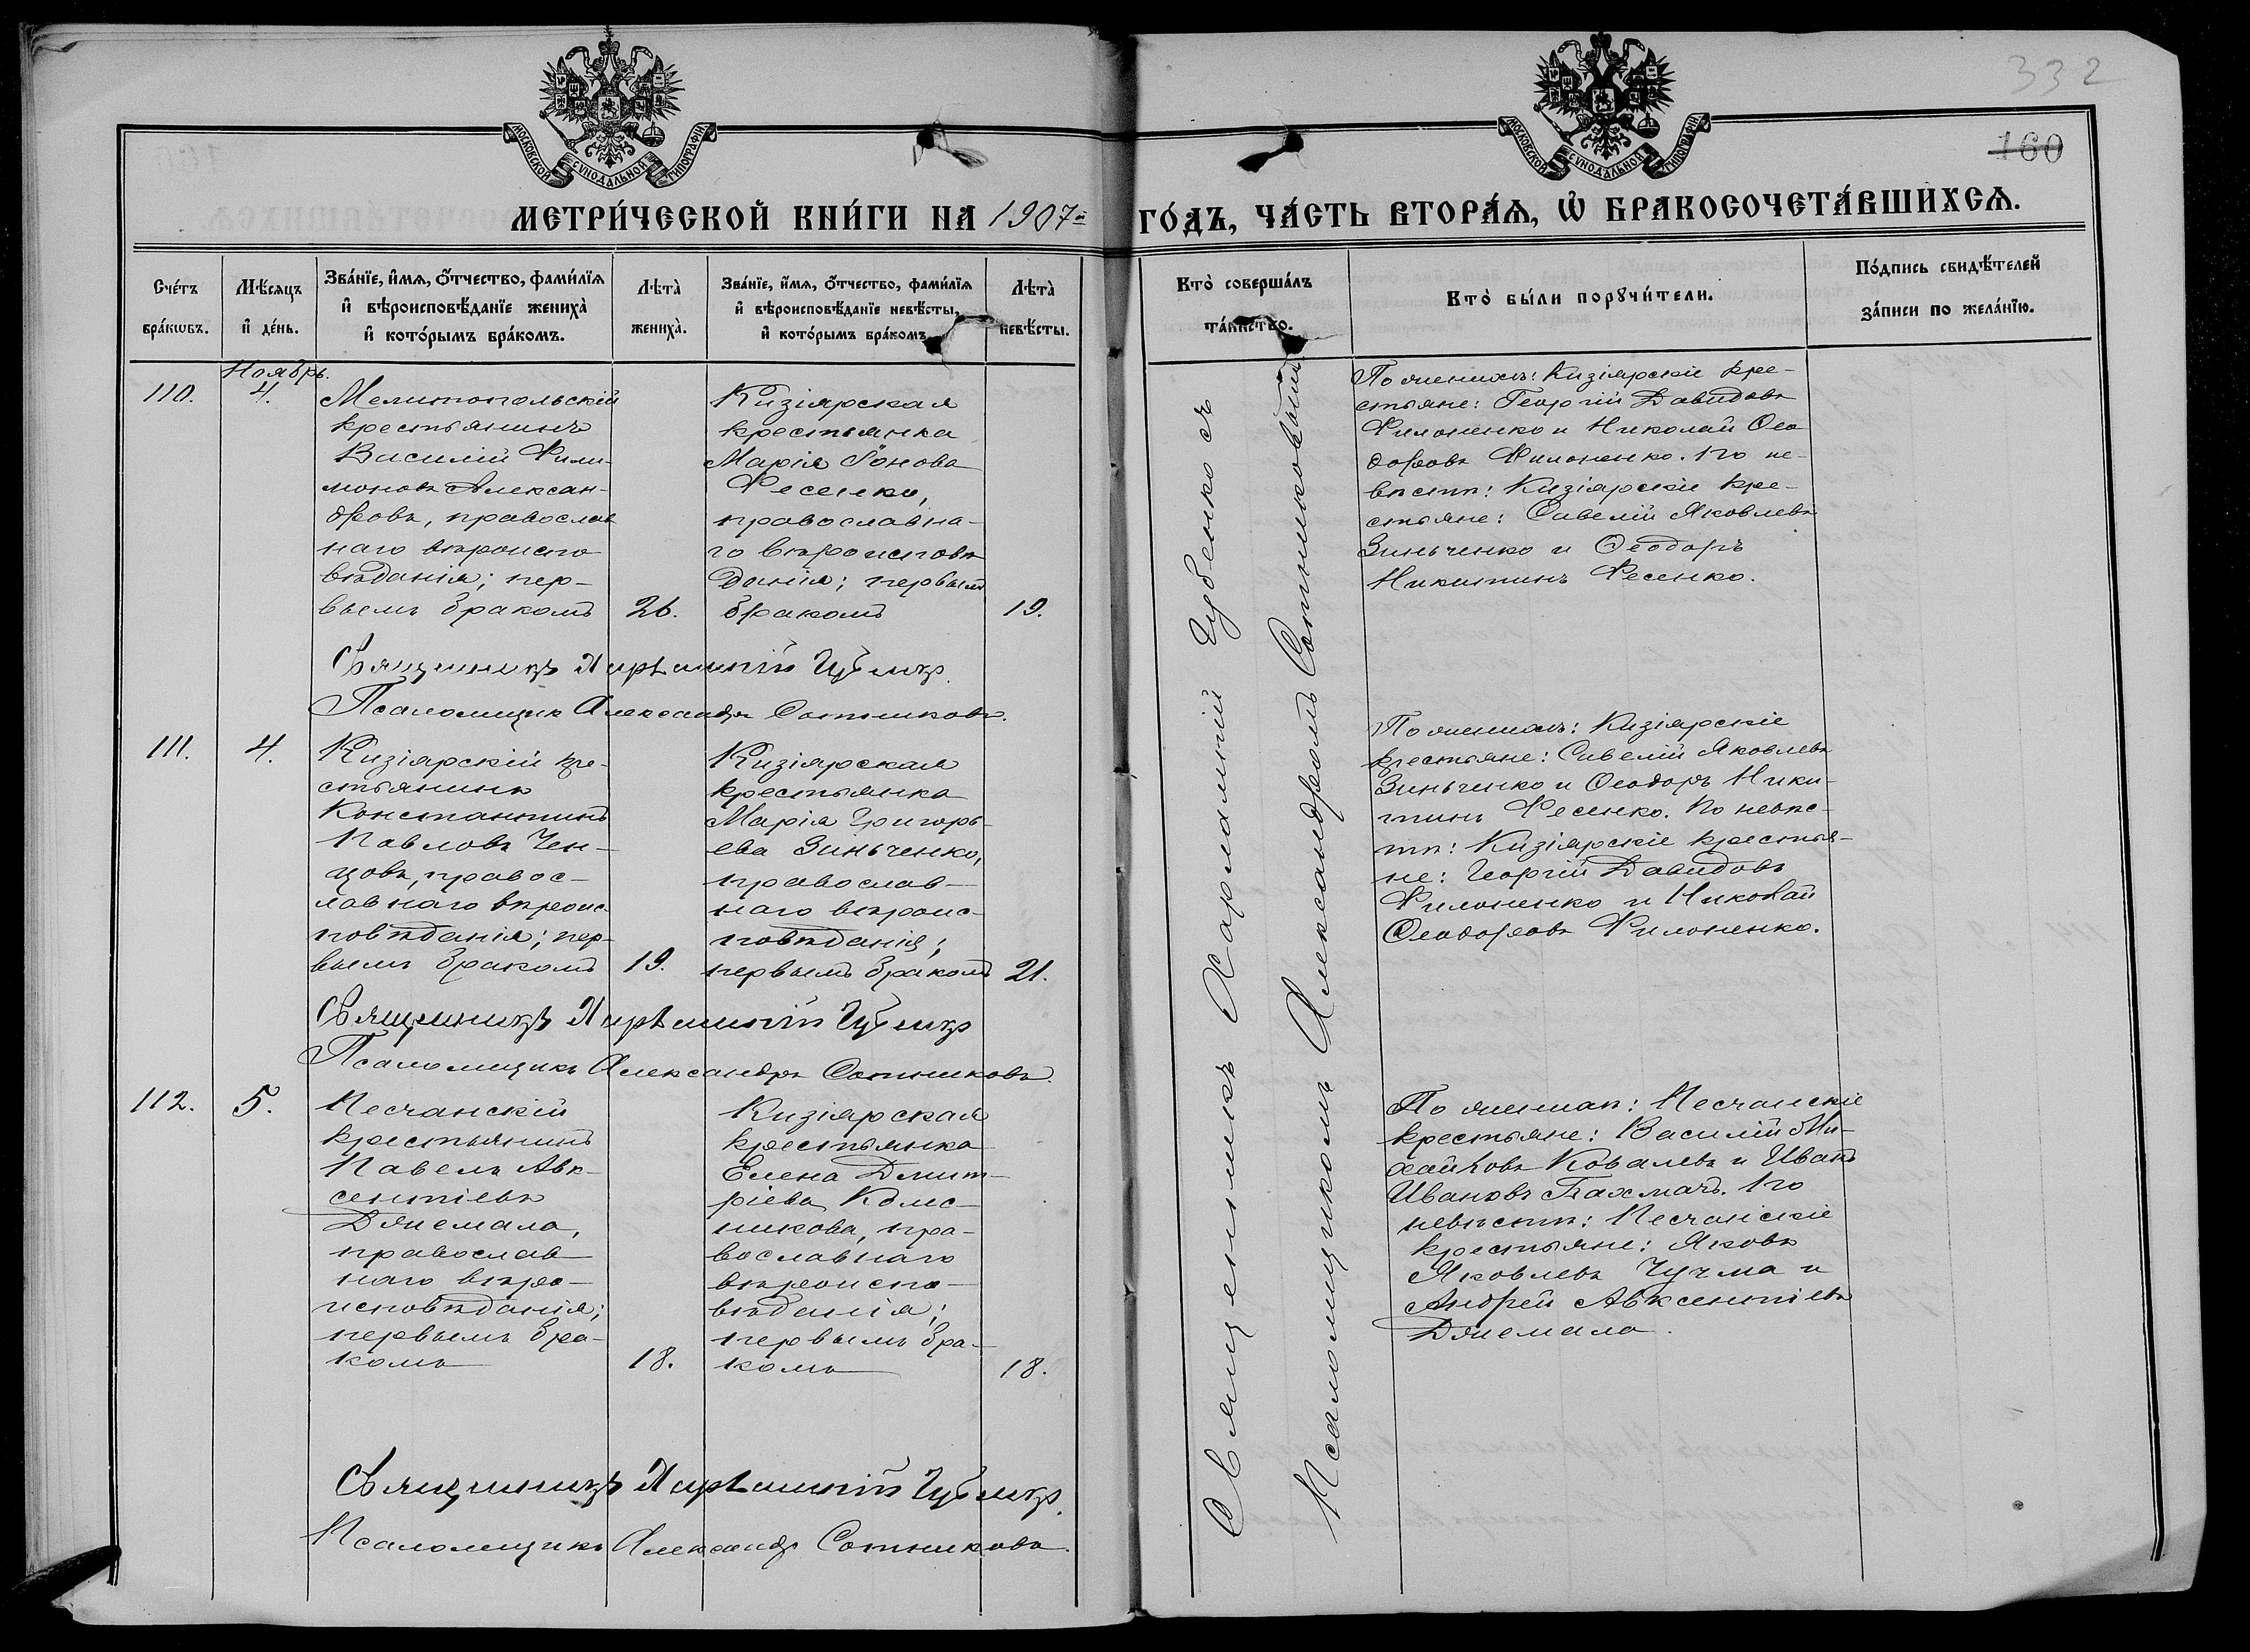 332
160
МОСКОВСКОЙ СѴНОДАЛЬНОЙ ТИПОГРАФІИ
МОСКОВСКОЙ СѴНОДАЛЬНОЙ ТИПОГРАФІИ
МЕТРИ́ЧЕСКОЙ КНИ́ГИ НА 1907й ГО́ДЪ, ЧА́СТЬ ВТОРА́Ѧ, Ѡ҆ БРАКОСОЧЕТА́ВШИХСѦ.
Сче́тъ
бра́кѡвъ.
Мѣ́сѧцъ
и҆ де́нь.
Зва́нїе, и҆́мѧ, ѻ҆́тчество, фами́лїѧ
и҆ вѣроисповѣ́данїе жениха̀
и҆ кото́рымъ бра́комъ.
Лѣта̀
жениха̀.
Зва́нїе, и҆́мѧ, ѻ҆́тчество, фами́лїѧ
и҆ вѣроисповѣ́данїе невѣ́сты,
и҆ кото́рымъ бра́комъ.
Лѣта̀
невѣ́сты.
Кто̀ соверша́лъ
та́инство.
Кто̀ бы́ли порꙋчи́тели.
По́дпись свидѣ́телей
за́писи по жела́нїю.
Ноябрь.
110.
4.
Мелитопольскій
крестьянинъ
Василій Фили-
моновъ Алексан-
дровъ, православ
наго вѣроиспо
вѣданія; пер-
вымъ бракомъ
26.
Кизіярская
крестьянка
Марія Іонова
Фесенко,
православна-
го вѣроисповѣ
данія; первымъ
бракомъ
19.
По женихѣ: Кизіярскіе кре-
стьяне: Георгій Давидовъ
Филоненко и Николай Ѳео
доровъ Филоненко. По не-
вѣстѣ: Кизіярскіе кре-
стьяне: Савелій Яковлевъ
Зиньченко и Ѳеодоръ
Никитинъ Фесенко.
Священникъ Харлампій Чубенко
Псаломщикъ Александръ Сотниковъ.
111.
4.
Кизіярскій кре-
стьянинъ
Константинъ
Павловъ Чен-
цовъ, правос-
лавнаго вѣроис
повѣданія; пер-
вымъ бракомъ
19.
Кизіярская
крестьянка
Марія Григорь-
ева Зиньченко,
православ-
наго вѣроис-
повѣданія;
первымъ бракомъ
21.
По женихѣ: Кизіярскіе
крестьяне: Савелій Яковлевъ
Зиньченко и Ѳеодоръ Ники-
тинъ Фесенко. По невѣс-
тѣ: Кизіярскіе крестья-
не: Георгій Давидовъ
Филоненко и Николай
Ѳеодоровъ Филоненко.
Священникъ Харлампій Чубенко
Псаломщикъ Александръ Сотниковъ.
112.
5.
Песчанскій
крестьянинъ
Павелъ Авк-
сентіевъ
Джемала,
православ-
наго вѣро-
исповѣданія;
первымъ бра-
комъ
18.
Кизіярская
крестьянка
Елена Дмит-
ріева Колес-
никова, пра-
вославнаго
вѣроиспо-
вѣданія;
первымъ бра-
комъ
18.
По женихѣ: Песчанскіе
крестьяне: Василій Ми-
хайловъ Ковалевъ и Иванъ
Ивановъ Бахмачъ. По
невѣстѣ: Песчанскіе
крестьяне: Яковъ
Яковлевъ Чучма и
Андрей Авксентіевъ
Джемала.
Священникъ Харлампій Чубенко.
Псаломщикъ Александръ Сотниковъ.
Священникъ Харлампій Чубенко съ
Псаломщикомъ Александромъ Сотниковымъ